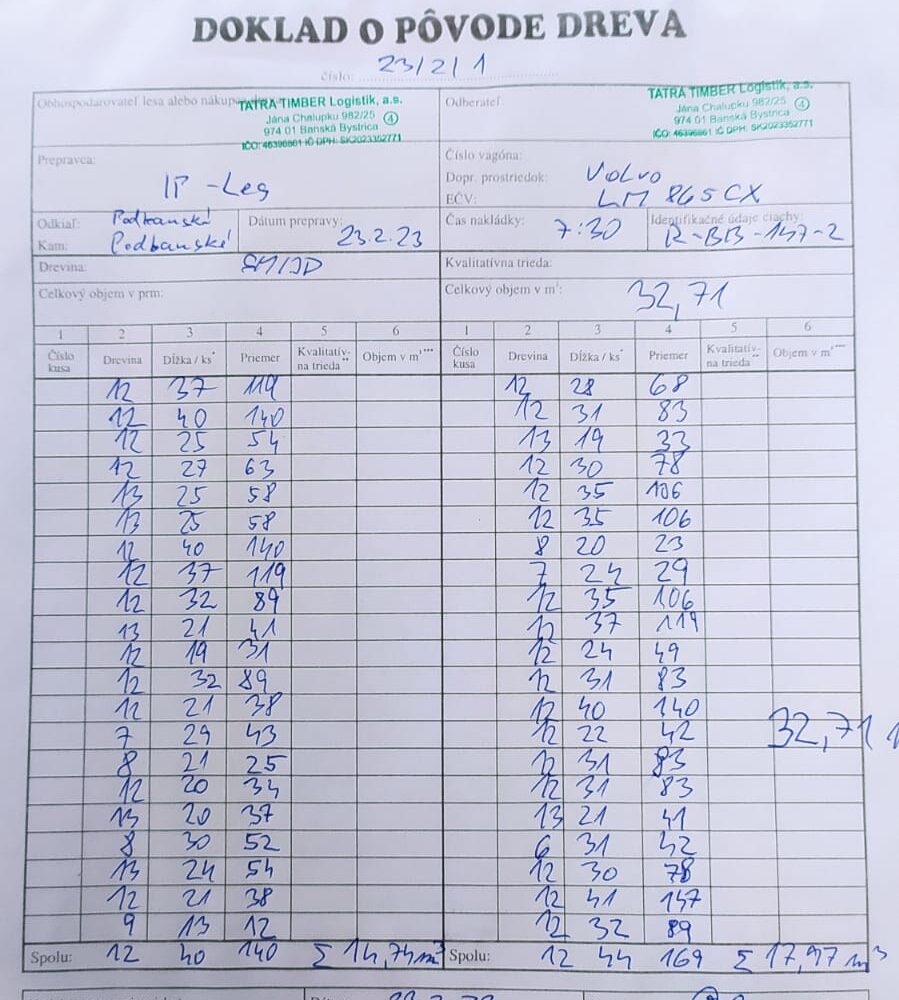 DOKLAD O PÔVODE DREVA
číslo: 23/2/1
Obhospodarovateľ lesa alebo nákup
TATRA TIMBER Logistik, a.s.
Jána Chalupku 982/25 4
974 01 Banská Bystrica
IČO: 46396861 IČ DPH: SK2023352771
Odberateľ
TATRA TIMBER Logistik, a.s.
Jána Chalupku 982/25 4
974 01 Banská Bystrica
IČO: 46396861 IČ DPH: SK2023352771
Prepravca:
IP -Les
Číslo vagóna:
Dopr. prostriedok: Volvo
EČV: LM 865CX
Odkiaľ: Podbanské
Kam: Podbanské
Dátum prepravy: 23.2.23
Čas nakládky: 7:30
Identifikačné údaje ciachy: R-BB-147-2
Drevina: SM/JD
Kvalitatívna trieda:
Celkový objem v prm:
Celkový objem v m³: 32,71
1 2 3 4 5 6 1 2 3 4 5 6
Číslo kusa Drevina Dĺžka / ks* Priemer Kvalitatív- na trieda** Objem v m³*** Číslo kusa Drevina Dĺžka / ks* Priemer Kvalitatív- na trieda** Objem v m³***
12 37 119 12 28 68
12 40 140 12 31 83
12 25 54 13 19 33
12 27 63 12 30 78
13 25 58 12 35 106
13 25 58 12 35 106
12 40 140 8 20 23
12 37 119 7 24 29
12 32 89 12 35 106
13 21 41 12 37 119
12 19 31 12 24 49
12 32 89 12 31 83
12 21 38 12 40 140
7 29 43 12 22 42 32,71
8 21 25 12 31 83
12 20 34 12 31 83
13 20 37 13 21 41
8 30 52 6 31 42
13 24 54 12 30 78
12 21 38 12 41 147
9 13 12 12 32 89
Spolu: 12 40 140 Σ 14,74m³ Spolu: 12 44 169 Σ 17,97 m³